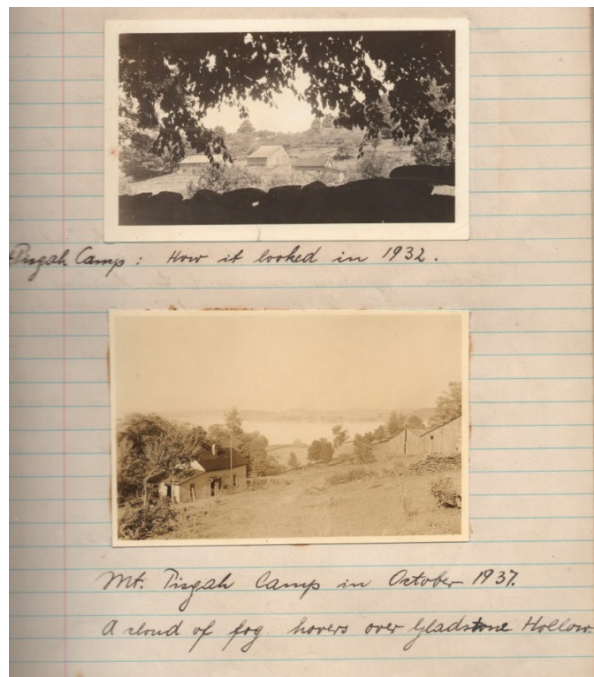 Pisgah Camp: How it looked in 1932.
Mt. Pisgah Camp in October 1937.
A cloud of fog hovers over Gladstone Hollow.